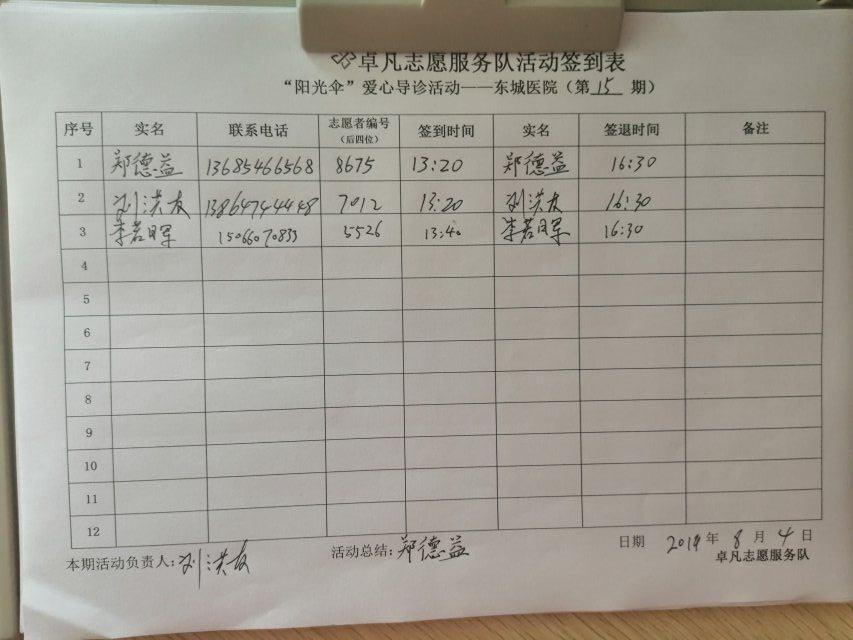 卓凡志愿服务队活动签到表
“阳光伞”爱心导诊活动——东城医院（第 15 期）
序号 实名 联系电话 志愿者编号（后四位） 签到时间 实名 签退时间 备注
1 郑德益 13685466568 8675 13:20 郑德益 16:30
2 刘洪友 13864744448 7012 13:20 刘洪友 16:30
3 李若晖 15066070833 5526 13:40 李若晖 16:30
4
5
6
7
8
9
10
11
12
本期活动负责人：刘洪友 活动总结：郑德益 日期 2019 年 8 月 4 日
卓凡志愿服务队